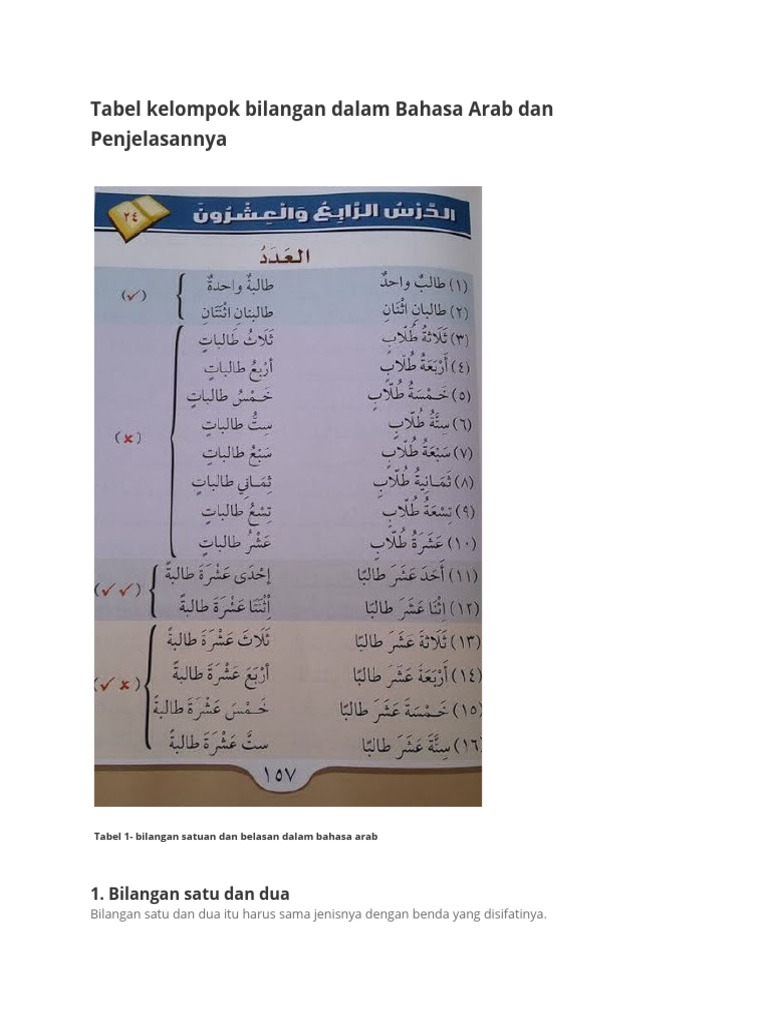 Tabel kelompok bilangan dalam Bahasa Arab dan
Penjelasannya
الدَّرْسُ الرَّابِعُ وَالْعِشْرُونَ ٢٤
العَدَدُ
(١) طالبٌ واحدٌ طالبةٌ واحدةٌ (✓)
(٢) طالبانِ اثْنَانِ طالبتانِ اثْنَتَانِ
(٣) ثَلَاثَةُ طُلّابٍ ثَلَاثُ طَالباتٍ
(٤) أَرْبَعَةُ طُلّابٍ أَرْبَعُ طالباتٍ
(٥) خَـمْسَةُ طُلّابٍ خَـمْسُ طالباتٍ
(٦) سِتَّةُ طُلّابٍ سِتُّ طالباتٍ (✗)
(٧) سَبْعَةُ طُلّابٍ سَبْعُ طالباتٍ
(٨) ثَمَـانِيةُ طُلّابٍ ثَمَـانِي طالباتٍ
(٩) تِسْعَةُ طُلّابٍ تِسْعُ طالباتٍ
(١٠) عَشَرَةُ طُلّابٍ عَشْرُ طالباتٍ
(١١) أَحَدَ عَشَرَ طالبًا إحْدَى عَشْرَةَ طالبةً (✓ ✓)
(١٢) اِثْنَا عَشَرَ طالبًا اِثْنَتَا عَشْرَةَ طالبةً
(١٣) ثَلَاثَةَ عَشَرَ طالبًا ثَلَاثَ عَشْرَةَ طالبةً
(١٤) أَرْبَعَةَ عَشَرَ طالبًا أَرْبَعَ عَشْرَةَ طالبةً (✓ ✗)
(١٥) خَـمْسَةَ عَشَرَ طالبًا خَـمْسَ عَشْرَةَ طالبةً
(١٦) سِتَّةَ عَشَرَ طالبًا ستَّ عَشْرَةَ طالبةً
١٥٧
Tabel 1- bilangan satuan dan belasan dalam bahasa arab
1. Bilangan satu dan dua
Bilangan satu dan dua itu harus sama jenisnya dengan benda yang disifatinya.